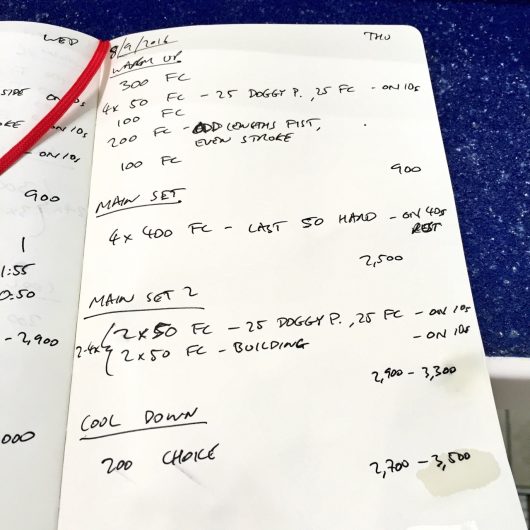 WED
SIDE ON 10s
OKE - ON 10s
- ON 10s
900
1
1:55
0:50
- 2,900
000
8/9/2016 THU
WARM UP
300 FC
4x 50 FC - 25 DOGGY P., 25 FC - ON 10s
100 FC
200 FC - ODD LENGTHS FIST,
EVEN STROKE
100 FC
900
MAIN SET
4 x 400 FC - LAST 50 HARD - ON 40s
REST
2,500
MAIN SET 2
2-4x { 2 x 50 FC - 25 DOGGY P., 25 FC - ON 10s
2 x 50 FC - BUILDING - ON 10s
2,900 - 3,300
COOL DOWN
200 CHOICE
2,700 - 3,500